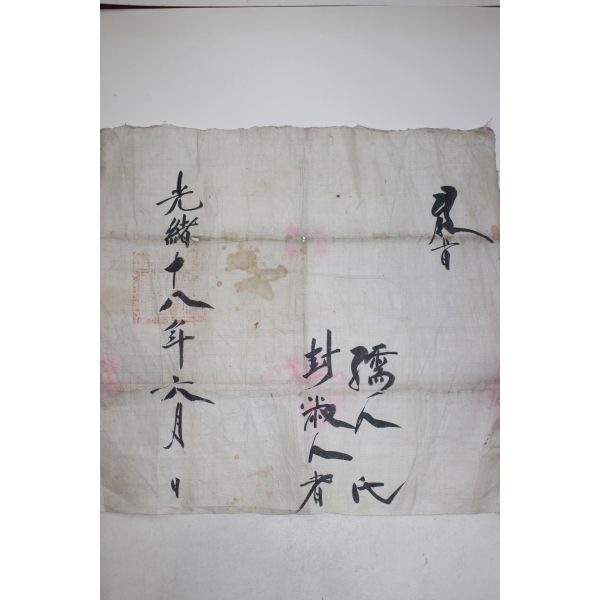 敎旨
孺人 氏
封淑人者
光緖十八年六月 日